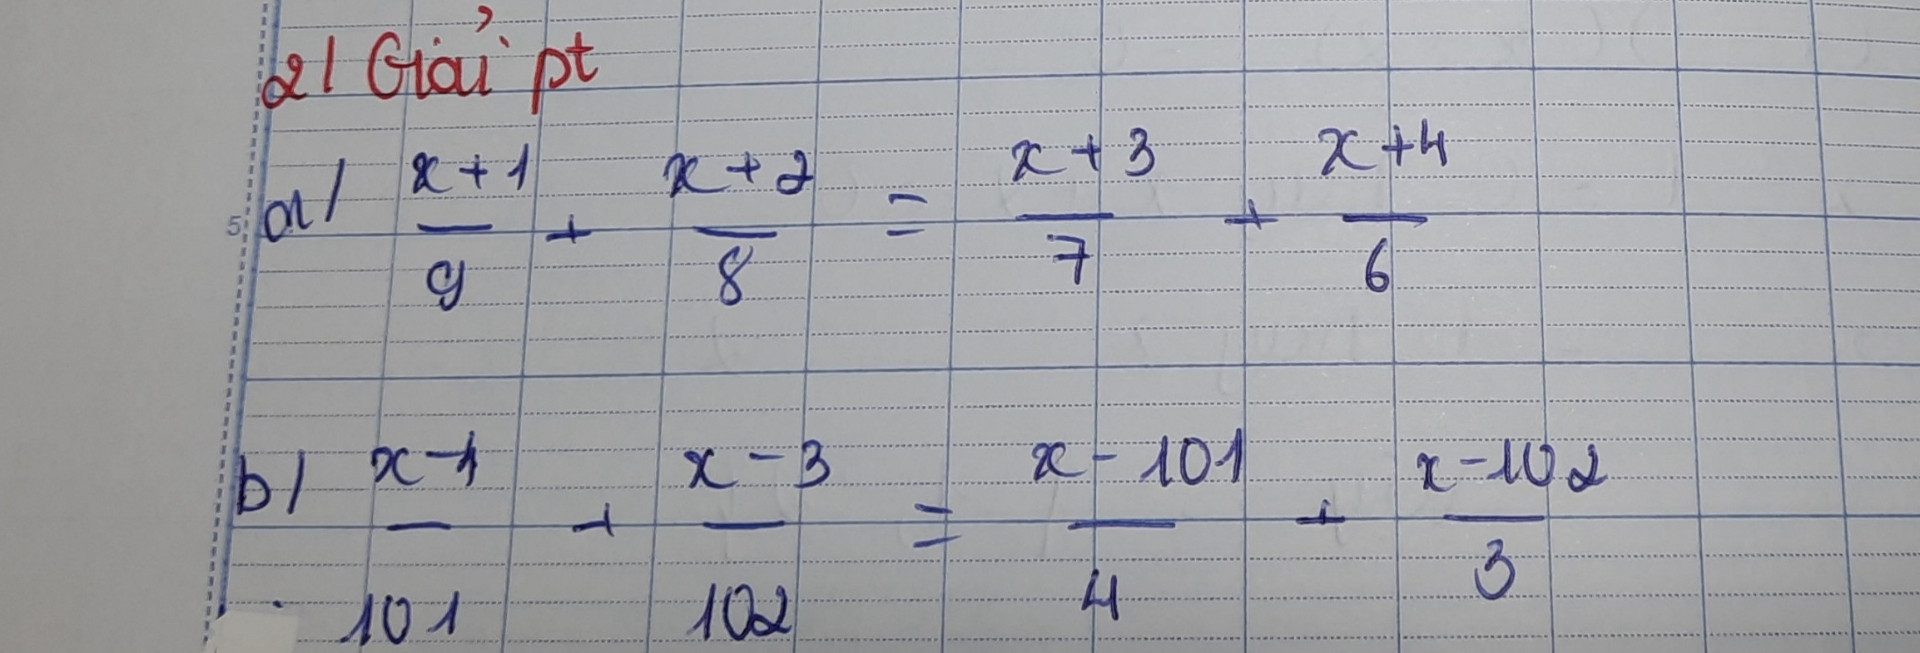 2/ Giải pt
a/ x+1/9 + x+2/8 = x+3/7 + x+4/6
b/ x-1/101 + x-3/102 = x-101/4 + x-102/3
5